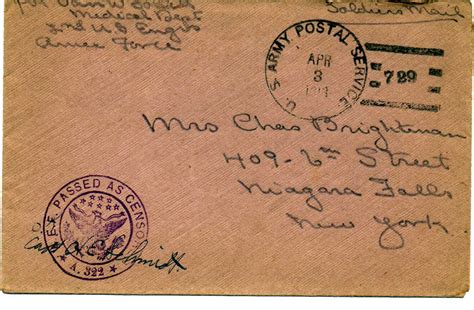 Soldiers Mail
Medical Dept
2nd U S Engrs
Amex Force
U. S. ARMY POSTAL SERVICE
APR
3
729
Mrs Chas Brightman
409-6th Street
Niagara Falls
New York
A.E.F. PASSED AS CENSORED
A. 322
Schmidt.